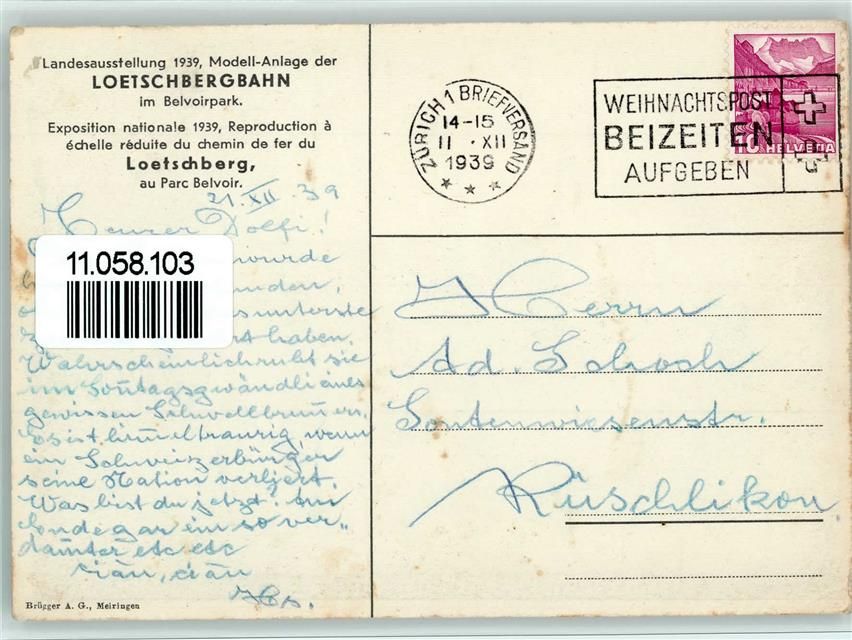 Landesausstellung 1939, Modell-Anlage der
LOETSCHBERGBAHN
im Belvoirpark.
Exposition nationale 1939, Reproduction à
échelle réduite du chemin de fer du
Loetschberg,
au Parc Belvoir.
ZÜRICH 1 BRIEFVERSAND
14-15
11 · XII
1939
WEIHNACHTSPOST
BEIZEITEN
AUFGEBEN
10 HELVETIA
21 XII 39
Dolfi!
wurde
11.058.103
unterste
haben.
Wahrscheinlich ruht sie
im Sontagsgwändli eines
gewissen Schwellbrunners.
es ist himmeltraurig, wenn
ein Schweizerbürger
seine Nation verliert.
Was bist du jetzt? Am
Ende gar ein so ver-
damter etc etc
ciau, ciau
Hs.
Herrn
Ad. Schoch
Sontenwiesenstr.
Rüschlikon
Brügger A. G., Meiringen